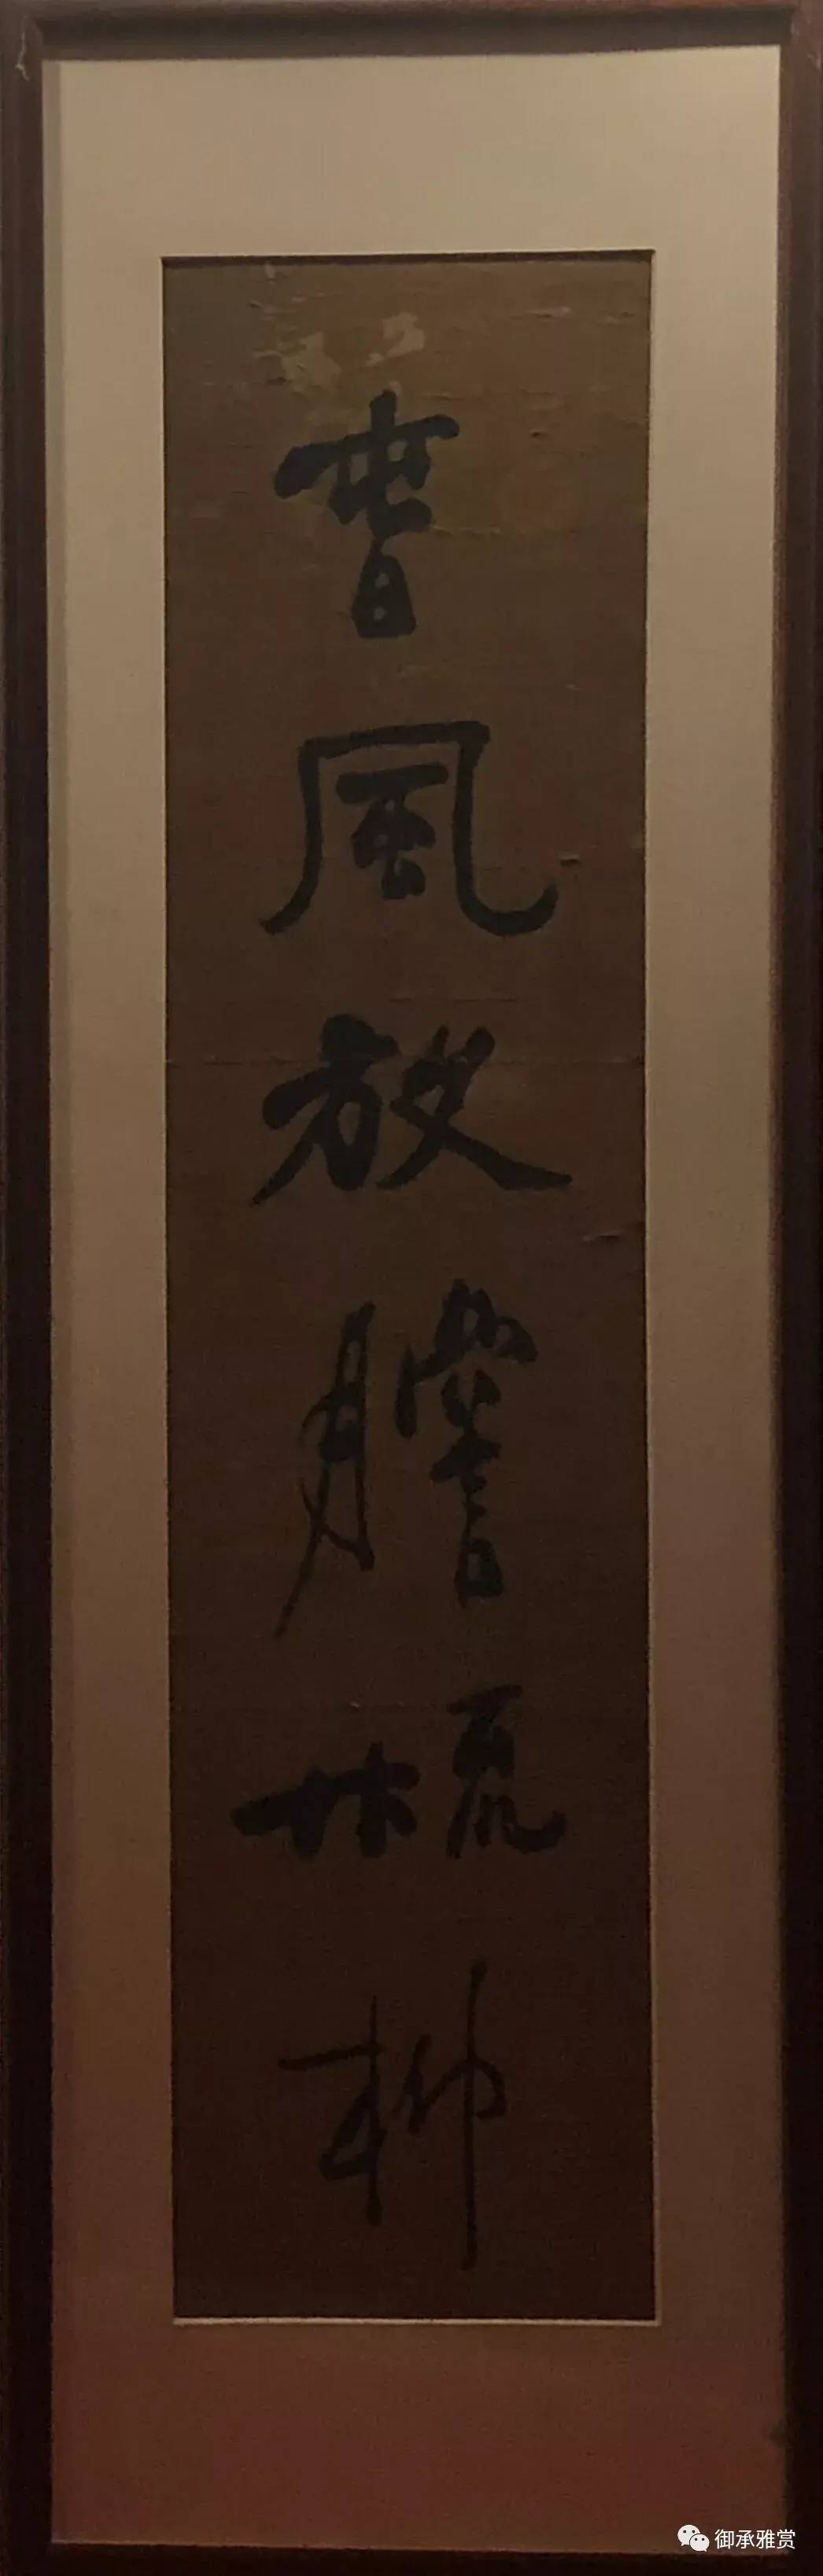 春風放膽梳柳
御承雅赏